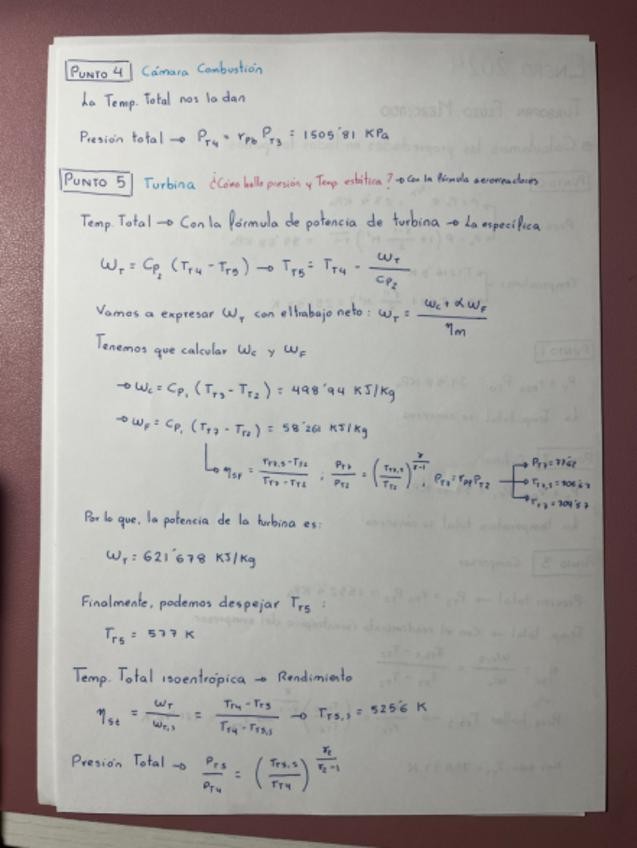 PUNTO 4 Cámara Combustión
La Temp. Total nos la dan
Presión total → P_T4 = r_Pb P_T3 = 1505'81 KPa
PUNTO 5 Turbina ¿Cómo hallo presión y Temp. estática? → Con la fórmula aerorreactores
Temp. Total → Con la fórmula de potencia de turbina → La específica
ω_T = Cp_2 (T_T4 - T_T5) → T_T5 = T_T4 - ω_T / Cp_2
Vamos a expresar ω_T con el trabajo neto: ω_T = (ω_c + α ω_F) / η_m
Tenemos que calcular ω_c y ω_F
→ ω_c = Cp_1 (T_T3 - T_T2) = 498'94 KJ/Kg
→ ω_F = Cp_1 (T_T7 - T_T2) = 58'261 KJ/Kg
η_SF = (T_T7,S - T_T2) / (T_T7 - T_T2) ; P_T7 / P_T2 = (T_T7,S / T_T2)^(γ/(γ-1)) ; P_T7 = r_PF P_T2
Por lo que, la potencia de la turbina es:
ω_T = 621'678 KJ/Kg
Finalmente, podemos despejar T_T5 :
T_T5 = 577 K
Temp. Total isoentrópica → Rendimiento
η_st = ω_T / ω_T,s = (T_T4 - T_T5) / (T_T4 - T_T5,s) → T_T5,s = 525'6 K
Presión Total → P_T5 / P_T4 = (T_T5,s / T_T4)^(γ_2/(γ_2-1))